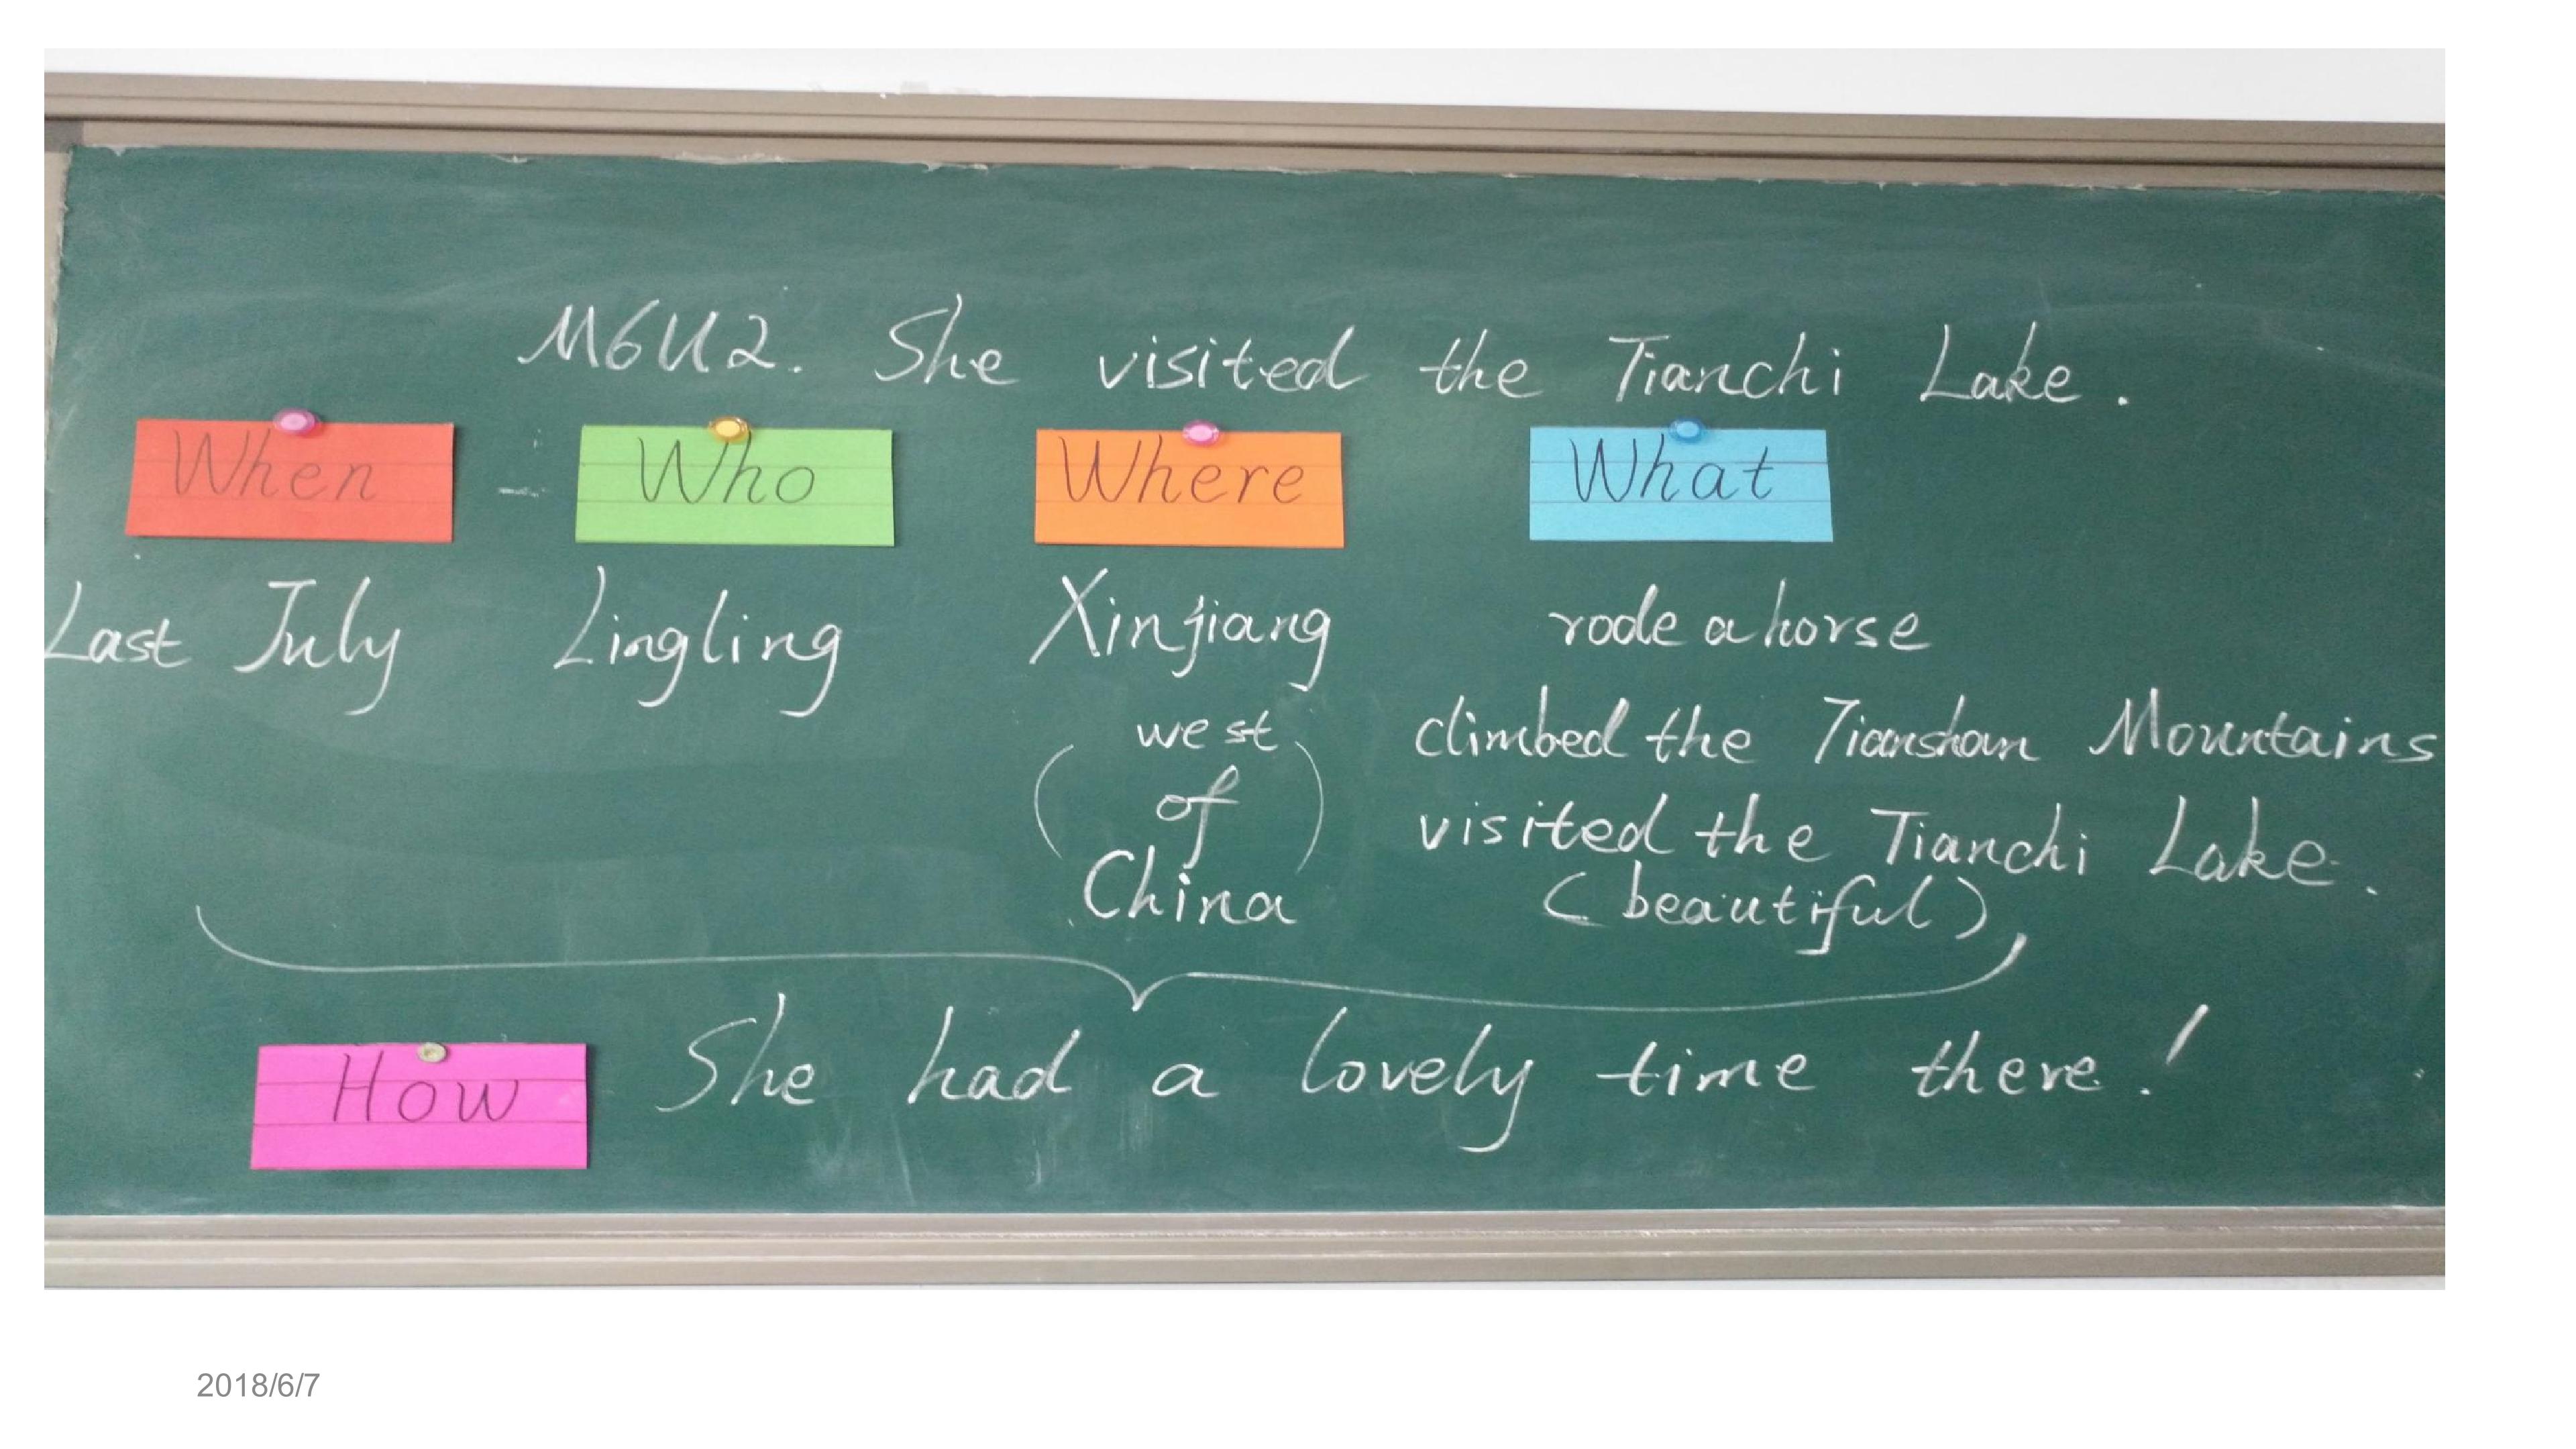 M6U2. She visited the Tianchi Lake.
When Who Where What
Last July Lingling Xinjiang rode a horse
west climbed the Tianshan Mountains
( of ) visited the Tianchi Lake.
China (beautiful)
How She had a lovely time there!
2018/6/7